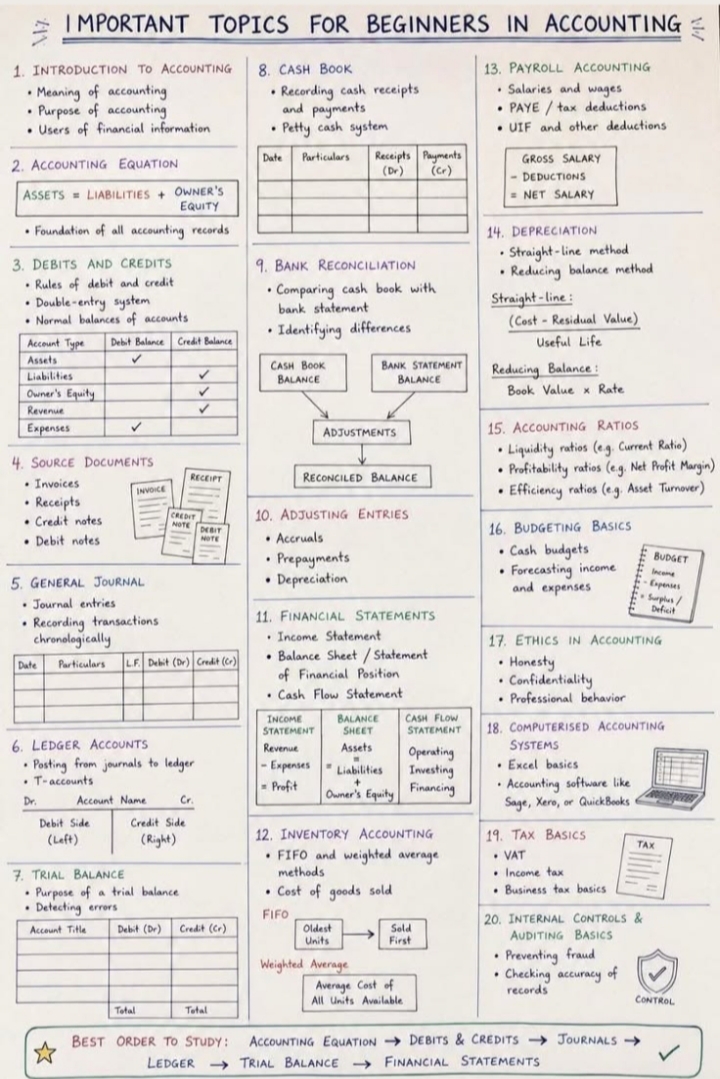 IMPORTANT TOPICS FOR BEGINNERS IN ACCOUNTING
1. INTRODUCTION TO ACCOUNTING
• Meaning of accounting
• Purpose of accounting
• Users of financial information
2. ACCOUNTING EQUATION
ASSETS = LIABILITIES + OWNER'S
EQUITY
• Foundation of all accounting records
3. DEBITS AND CREDITS
• Rules of debit and credit
• Double-entry system
• Normal balances of accounts
Account Type Debit Balance Credit Balance
Assets ✓
Liabilities ✓
Owner's Equity ✓
Revenue ✓
Expenses ✓
4. SOURCE DOCUMENTS
• Invoices
• Receipts
• Credit notes
• Debit notes
INVOICE
RECEIPT
CREDIT
NOTE
DEBIT
NOTE
5. GENERAL JOURNAL
• Journal entries
• Recording transactions
chronologically
Date Particulars L.F. Debit (Dr) Credit (Cr)
6. LEDGER ACCOUNTS
• Posting from journals to ledger
• T-accounts
Dr. Account Name Cr.
Debit Side Credit Side
(Left) (Right)
7. TRIAL BALANCE
• Purpose of a trial balance
• Detecting errors
Account Title Debit (Dr) Credit (Cr)
Total Total
8. CASH BOOK
• Recording cash receipts
and payments
• Petty cash system
Date Particulars Receipts Payments
(Dr) (Cr)
9. BANK RECONCILIATION
• Comparing cash book with
bank statement
• Identifying differences
CASH BOOK
BALANCE
BANK STATEMENT
BALANCE
ADJUSTMENTS
RECONCILED BALANCE
10. ADJUSTING ENTRIES
• Accruals
• Prepayments
• Depreciation
11. FINANCIAL STATEMENTS
• Income Statement
• Balance Sheet / Statement
of Financial Position
• Cash Flow Statement
INCOME
STATEMENT
Revenue
- Expenses
= Profit
BALANCE
SHEET
Assets
=
= Liabilities
+
Owner's Equity
CASH FLOW
STATEMENT
Operating
Investing
Financing
12. INVENTORY ACCOUNTING
• FIFO and weighted average
methods
• Cost of goods sold
FIFO
Oldest
Units
→
Sold
First
Weighted Average
Average Cost of
All Units Available
13. PAYROLL ACCOUNTING
• Salaries and wages
• PAYE / tax deductions
• UIF and other deductions
GROSS SALARY
- DEDUCTIONS
= NET SALARY
14. DEPRECIATION
• Straight-line method
• Reducing balance method
Straight-line:
(Cost - Residual Value)
Useful Life
Reducing Balance:
Book Value × Rate
15. ACCOUNTING RATIOS
• Liquidity ratios (e.g. Current Ratio)
• Profitability ratios (e.g. Net Profit Margin)
• Efficiency ratios (e.g. Asset Turnover)
16. BUDGETING BASICS
• Cash budgets
• Forecasting income
and expenses
BUDGET
Income
- Expenses
= Surplus /
Deficit
17. ETHICS IN ACCOUNTING
• Honesty
• Confidentiality
• Professional behavior
18. COMPUTERISED ACCOUNTING
SYSTEMS
• Excel basics
• Accounting software like
Sage, Xero, or QuickBooks
19. TAX BASICS
• VAT
• Income tax
• Business tax basics
TAX
20. INTERNAL CONTROLS &
AUDITING BASICS
• Preventing fraud
• Checking accuracy of
records
CONTROL
BEST ORDER TO STUDY: ACCOUNTING EQUATION → DEBITS & CREDITS → JOURNALS →
LEDGER → TRIAL BALANCE → FINANCIAL STATEMENTS ✓